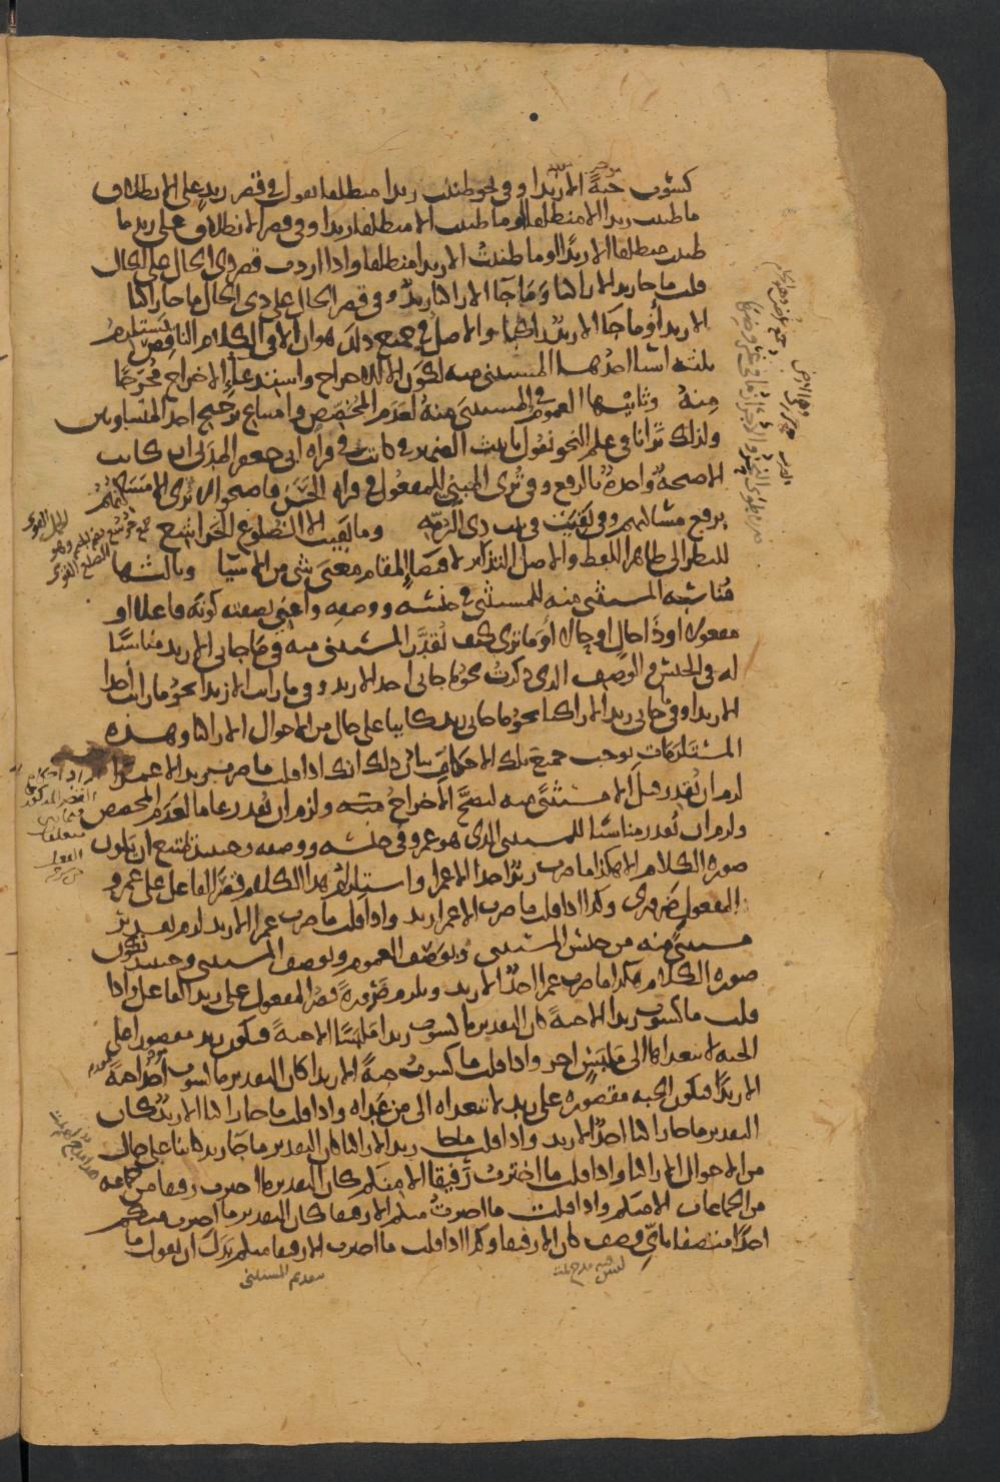 كسوت جبة الا زيدا وفي نحو ظننت زيدا منطلقا تقول في قصر زيد على الانطلاق
ما ظننت زيدا الا منطلقا او ما ظننت الا منطلقا زيدا وفي قصر الانطلاق على زيد ما
ظننت منطلقا الا زيدا او ما ظننت الا زيدا منطلقا واذا اردت قصر ذي الحال على الحال
قلت ما جا زيد الا راكبا وما جا الا راكبا زيد وفي قصر الحال على ذي الحال ما جا راكبا
الا زيد او ما جا الا زيد راكبا والاصل في جميع ذلك هو ان الا في الكلام الناقص يستلزم
ثلثه اشيا احدها المستثنى منه لكون الا للاخراج واستدعا الاخراج مخرجا
منه وثانيها العموم في المستثنى منه لعدم المخصص وامتناع ترجيح احد المتساويين
ولذلك ترانا في علم النحو نقول تانيث الضمير في كانت في قراه ابي جعفر المدني ان كانت
الا صيحة واحدة بالرفع وفي ترى المبني للمفعول في قراه الحسن فاصبحوا لا ترى الا مساكنهم
برفع مساكنهم وفي بقيت في بيت ذي الرمه وما بقيت الا الضلوع الجراشع
للنظر الى ظاهر اللفظ والاصل التذكير لاقتضا المقام معنى شي من الاشيا وثالثها
مناسبه المستثنى منه للمستثنى في جنسه ووصفه واعني بصفته كونه فاعلا او
مفعولا او ذا حال او حالا او ما ترى كيف تقدر المستثنى منه في ما جاني الا زيد مناسبا
له في الجنس والوصف الذي ذكرت نحو ما جاني احد الا زيد وفي ما رايت الا زيدا نحو ما رايت احدا
الا زيدا وفي ما جاني زيد الا راكبا نحو ما جاني زيد كاينا على حال من الاحوال الا راكبا وهذه
المستلزمات توجب جميع تلك الاحكام بيان ذلك انك اذا قلت ما ضرب زيد الا عمرا
لزم ان تقدر قبل الا مستثنى منه ليصح الاخراج منه ولزم ان تقدر عاما لعدم المخصص
ولزم ان تقدر مناسبا للمستثنى الذي هو عمرو في جنسه ووصفه وحينئذ يمتنع ان يكون
صورة الكلام الا هكذا ما ضرب زيد احدا الا عمرا واستلزام هذا الكلام قصر الفاعل على عمرو
المفعول ضروري وكذا اذا قلت ما ضرب الا عمرا زيد واذا قلت ما ضرب عمرا الا زيد لزم تقدير
مستثنى منه من جنس المستثنى وبوصف العموم وبوصف المستثنى وحينئذ تكون
صورة الكلام هكذا ما ضرب عمرا احد الا زيد ويلزم ضرورة قصر المفعول على زيد الفاعل واذا
قلت ما كسوت زيدا الا جبة كان التقدير ما كسوت زيدا ملبسا الا جبة فيكون زيد مقصورا على
الجبه لا يتعداها الى ملبس اخر واذا قلت ما كسوت جبة الا زيدا كان التقدير ما كسوت جبة احدا
الا زيدا فتكون الجبه مقصوره على زيد لا تتعداه الى من عداه واذا قلت ما جا راكبا الا زيد كان
التقدير ما جا راكبا احد الا زيد واذا قلت ما جا زيد الا راكبا كان التقدير ما جا زيد كاينا على حال
من الاحوال الا راكبا واذا قلت ما اخترت رفيقا الا منكم كان التقدير ما اخترت رفيقا من جماعه
من الجماعات الا منكم واذا قلت ما اخترت منكم الا رفيقا كان التقدير ما اخترت منكم
احدا متصفا باي وصف كان الا رفيقا وكذا اذا قلت ما اخترت الا رفيقا منكم بدل ان تقول ما
تقديم المستثنى